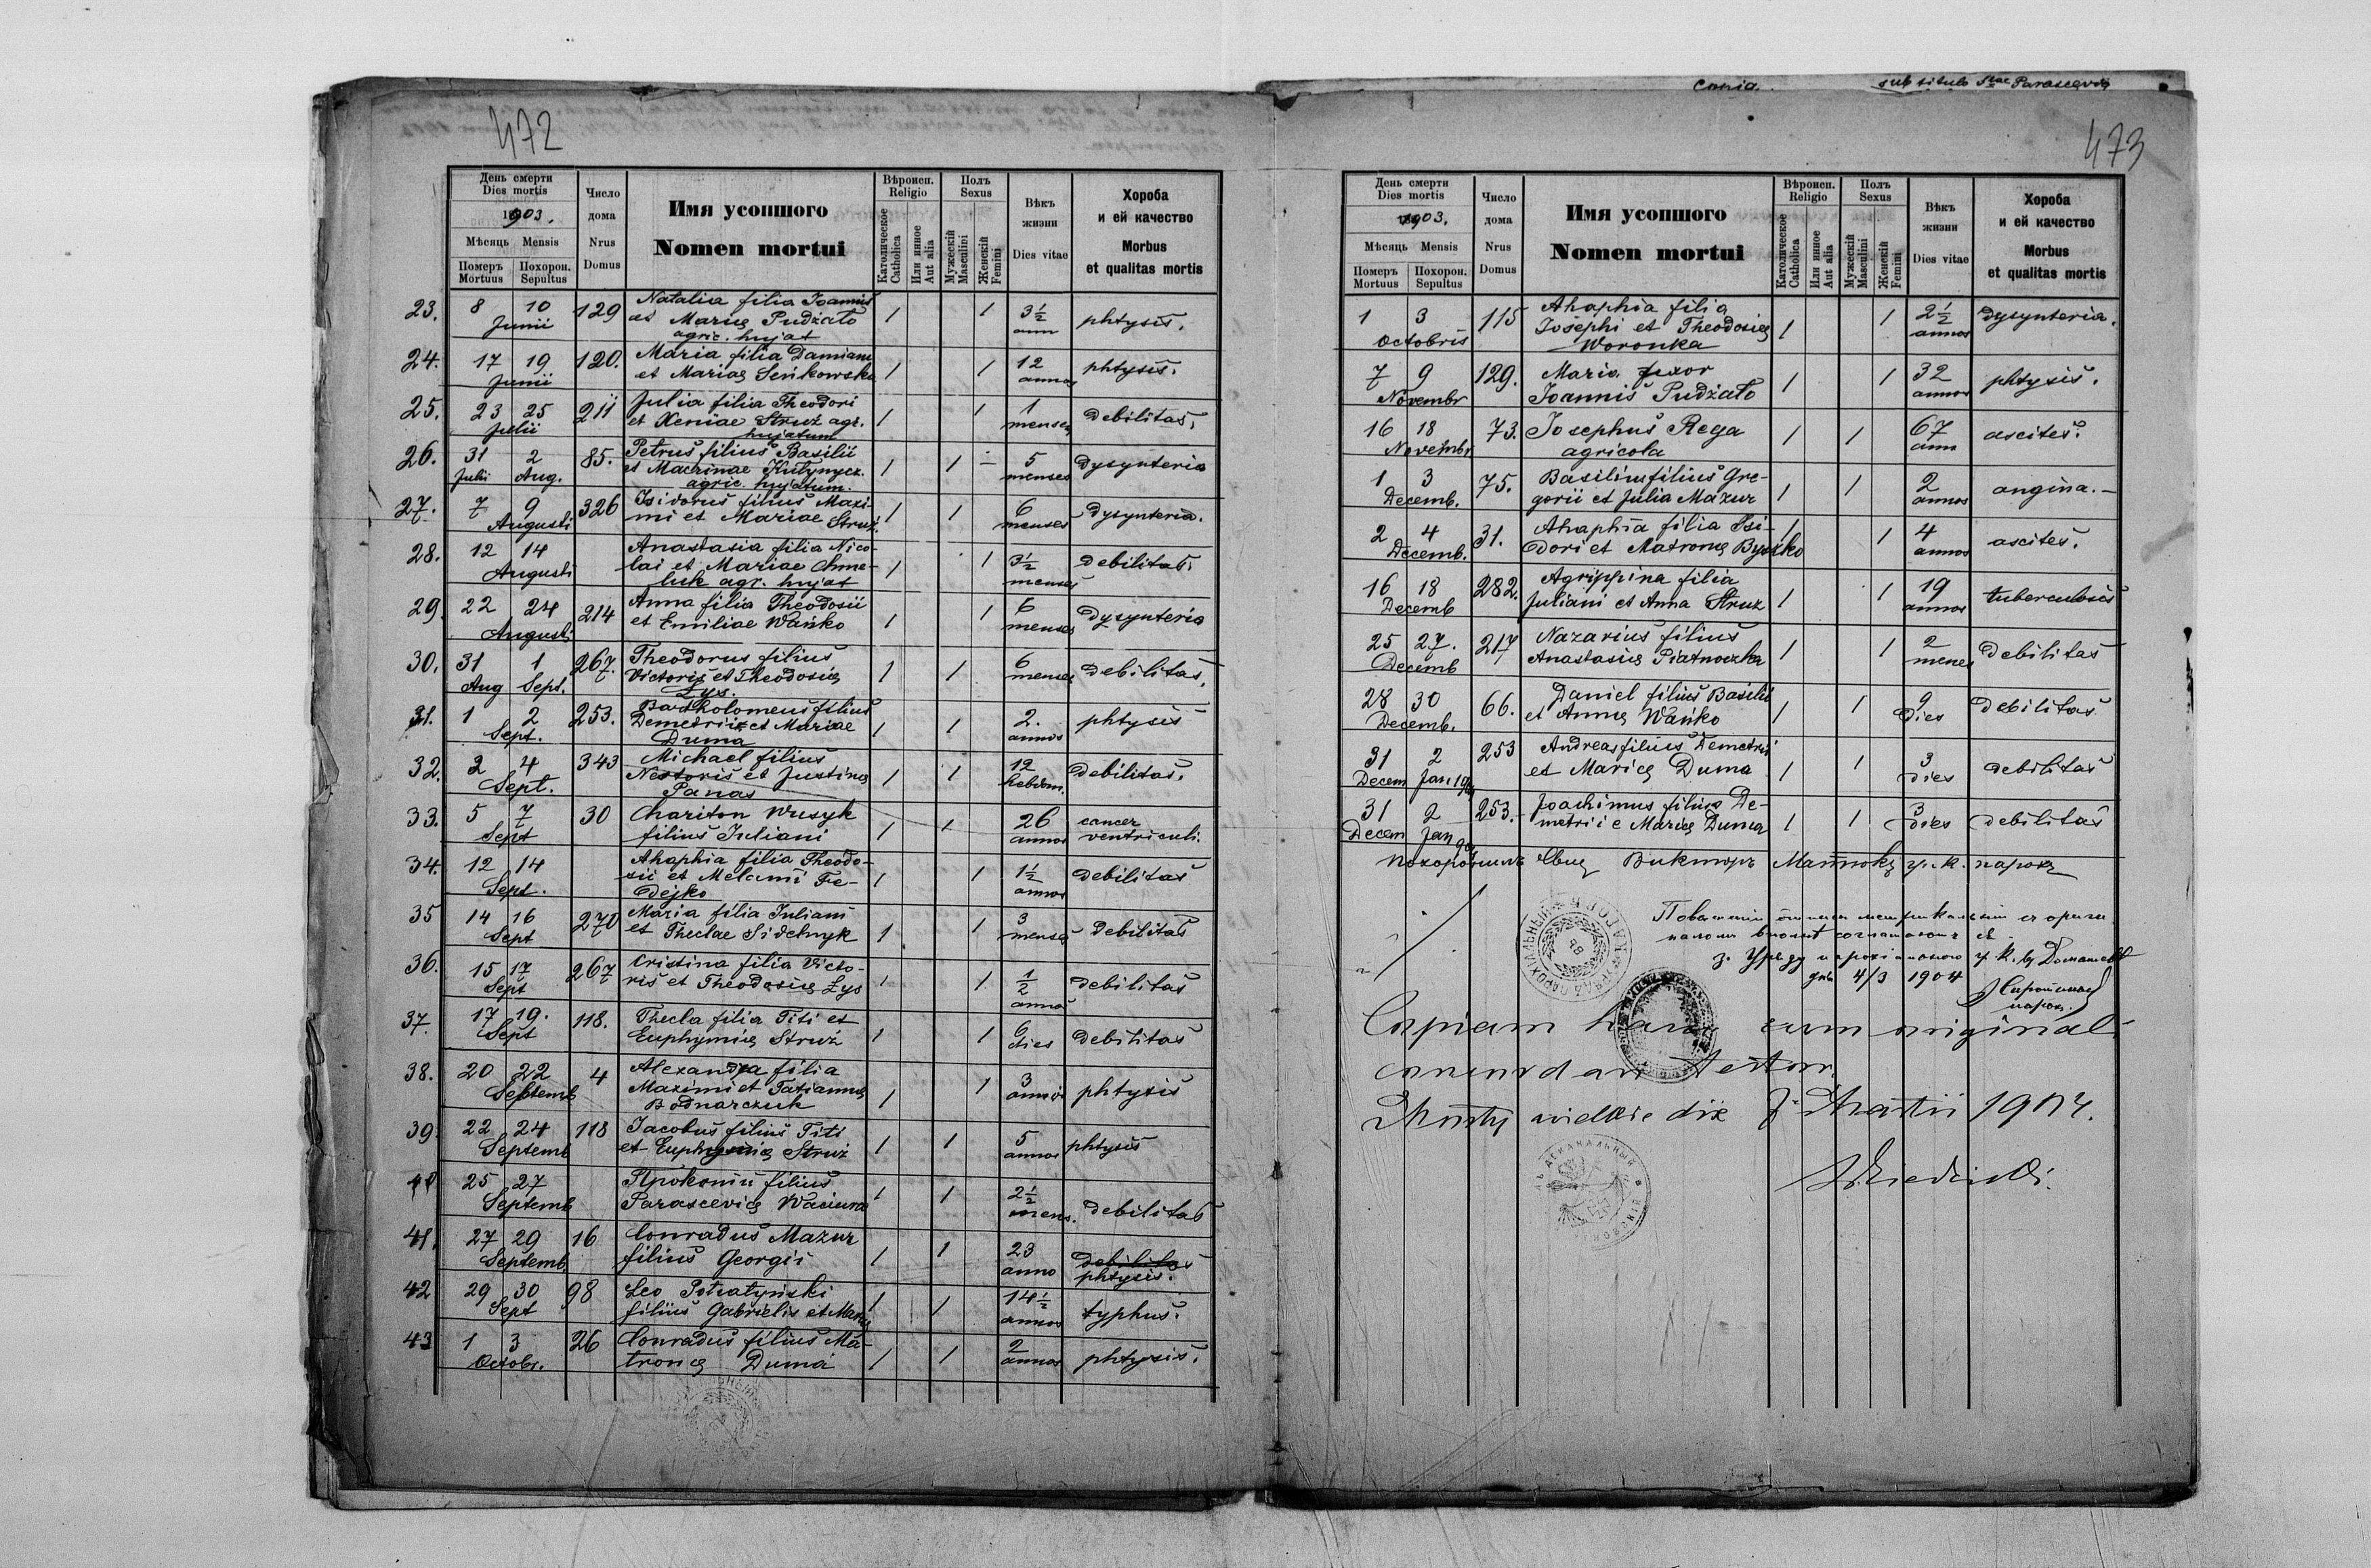 472
День смерти
Dies mortis
1903.
Мѣсяць Mensis
Померъ Mortuus
Похорон. Sepultus
Число дома
Nrus Domus
Имя усопшого
Nomen mortui
Вѣроисп. Religio
Католическое Catholica
Или инное Aut alia
Полъ Sexus
Мужескій Masculini
Женскій Femini
Вѣкъ жизни
Dies vitae
Хороба и ей качество
Morbus et qualitas mortis
23. 8 10 Junii 129 Natalia filia Joannis
et Mariae Pudżało
agric. hujat 1 1 3½ ann phtysis.
24. 17 19 Junii 120. Maria filia Damiani
et Mariae Seńkowska 1 1 12 annos phtysis.
25. 23 25 Julii 211 Julia filia Theodori
et Xeniae Struż agr.
hujatum 1 1 1 menses debilitas.
26. 31 Julii 2 Aug. 85. Petrus filius Basilii
et Macrinae Kutynycz.
agric. hujatum. 1 1 5 menses dysynteria
27. 7 9 Augusti 326 Isidorus filius Maxi-
mi et Mariae Struż. 1 1 6 menses dysynteria.
28. 12 14 Augusti Anastasia filia Nico-
lai et Mariae Chme-
luk agr. hujat 1 1 3½ menses debilitas.
29 22 24 Augusti 214 Anna filia Theodosii
et Emiliae Wańko 1 1 6 menses dysynteria
30. 31 Aug 1 Sept. 267. Theodorus filius
Victoris et Theodosiae
Łys. 1 1 6 menses debilitas.
31. 1 2 Sept. 253. Bartholomeus filius
Demetrii et Mariae
Duma 1 1 2. annos phtysis
32. 2 4 Sept. 343 Michael filius
Nestoris et Justinae
Panas 1 1 12 hebdom. debilitas.
33. 5 7 Sept 30 Chariton Wusyk
filius Juliani 1 1 26 annos cancer
ventriculi.
34. 12 14 Sept. Ahaphia filia Theodo-
sii et Melanii Fe-
dejko 1 1 1½ annos debilitas
35 14 16 Sept 270 Maria filia Juliani
et Theclae Sidelnyk 1 1 3 menses debilitas
36. 15 17 Sept 267 Cristina filia Victo-
ris et Theodosiae Łys 1 1 ½ annos debilitas
37. 17 19. Sept 118. Thecla filia Titi et
Euphymiae Struż 1 1 6 dies debilitas
38. 20 22 Septemb 4 Alexandra filia
Maximi et Tatiannae
Bodnarczuk 1 1 3 annos phtysis
39. 22 24 Septemb 118 Jacobus filius Titi
et Euphymiae Struż 1 1 5 annos phtysis
40 25 27 Septemb filius
Parasceviae Waciura 1 1 2½ mens. debilitas
41. 27 29 Septemb. 16 Conradus Mazur
filius Georgii 1 1 23 anno debilitas
phtysis.
42 29 30 Sept 98 Leo Potratyński
filius Gabrielis et Mariae 1 1 14½ annos typhus.
43 1 3 Octobr. 26 Conradus filius Ma-
tronae Duma 1 1 2 annos phtysis.
sub titulo Stae Parascevia
473
День смерти
Dies mortis
1903.
Мѣсяць Mensis
Померъ Mortuus
Похорон. Sepultus
Число дома
Nrus Domus
Имя усопшого
Nomen mortui
Вѣроисп. Religio
Католическое Catholica
Или инное Aut alia
Полъ Sexus
Мужескій Masculini
Женскій Femini
Вѣкъ жизни
Dies vitae
Хороба и ей качество
Morbus et qualitas mortis
1 3 Octobris 115 Ahaphia filia
Josephi et Theodosiae
Woronka 1 1 2½ annos dysynteria.
7 9 Novembr 129. Maria uxor
Joannis Pudżało 1 1 32 annos phtysis.
16 18 Novembr 73. Josephus Rega
agricola 1 1 67 ann ascites.
1 3 Decemb. 75. Basilius filius Gre-
gorii et Julia Mazur 1 1 2 annos angina.-
2 4 Decemb. 31. Ahaphia filia Isi-
dori et Matronae Byszko 1 1 4 annos ascites.
16 18 Decemb 282. Agrippina filia
Juliani et Anna Struż 1 1 19 annos tuberculosis
25 27. Decemb 217 Nazarius filius
Anastasiae Piatnoczka 1 1 2 menes debilitas
28 30 Decemb. 66. Daniel filius Basilii
et Annae Wańko 1 1 9 dies debilitas
31 Decem 2 Jan 1904 253 Andreas filius Demetrii
et Mariae Duma 1 1 3 dies debilitas
31 Decem 2 Jan 904 253. Joachimus filius De-
metrii e Mariae Duma 1 1 3 dies debilitas
похоронилъ Викторъ Матюкъ гр. к. парохъ
дня 4/3 1904
парох.
Copiam hanc cum originali
concordare testor.
Mosty wielkie die 7 Martii 1904.